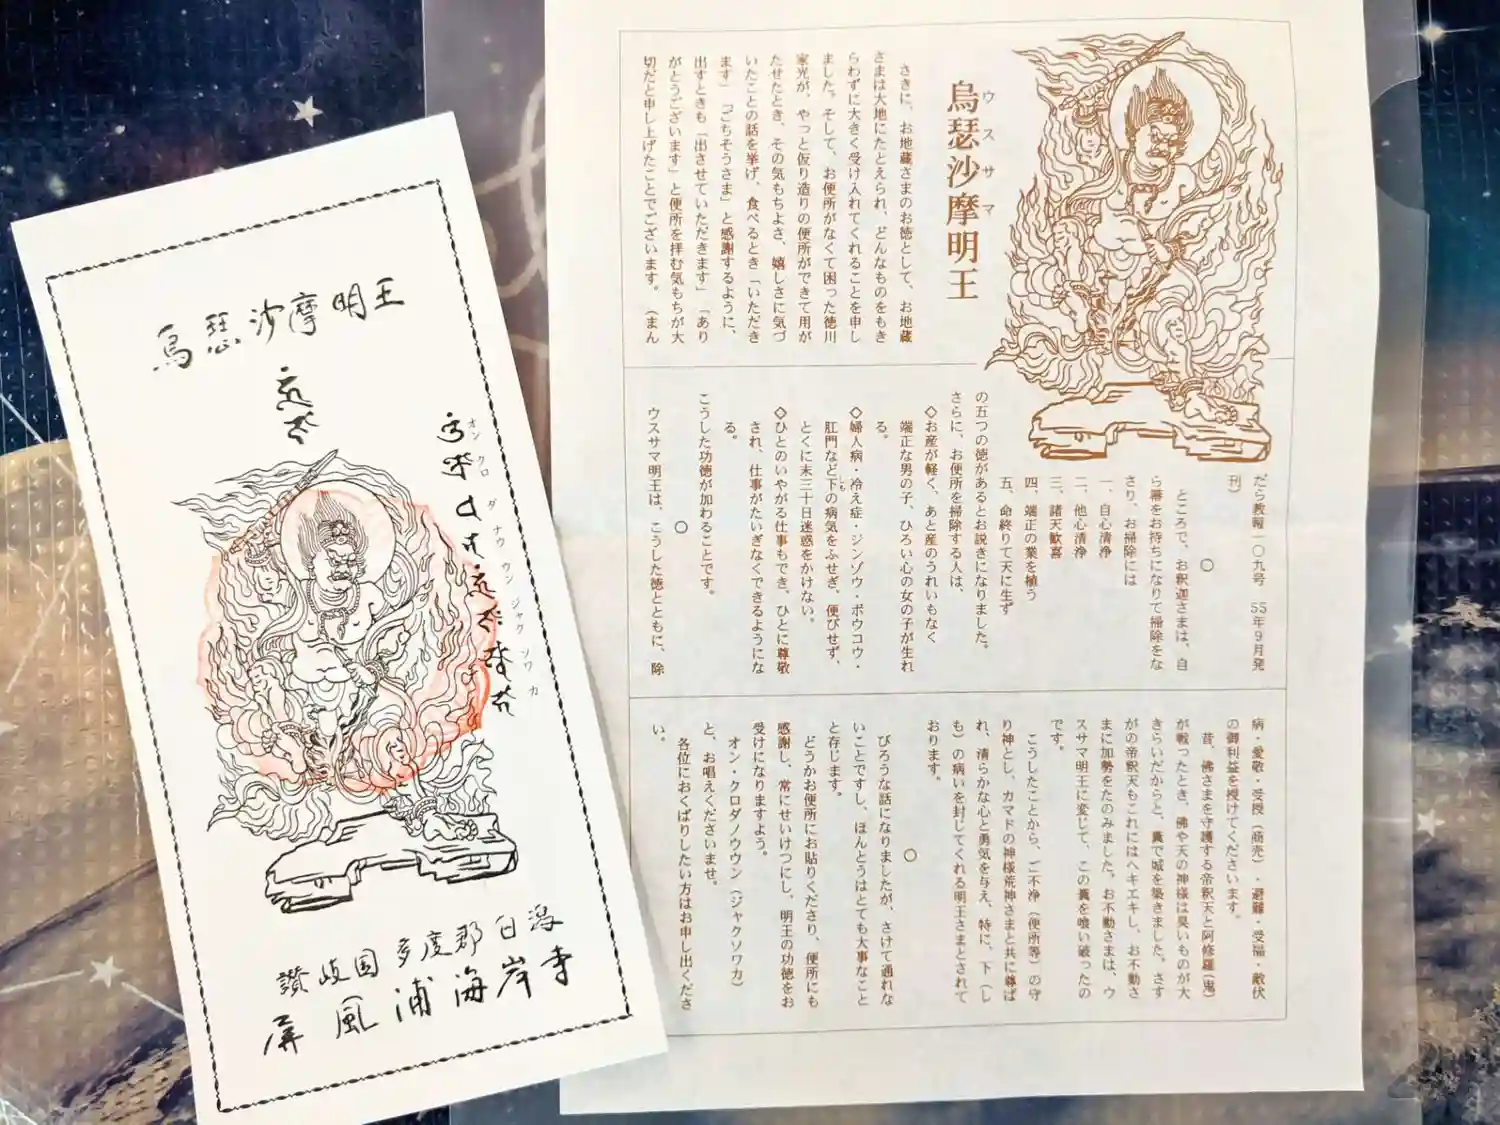 烏瑟沙摩明王
オン クロ ダ ナウ ウン ジャク ソワ カ
讃岐国多度郡白潟
屏風浦海岸寺
烏瑟沙摩明王
ウスサマ
さきに、お地蔵さまのお徳として、お地蔵
さまは大地にたとえられ、どんなものをもき
らわずに大きく受け入れてくれることを申し
ました。そして、お便所がなくて困った徳川
家光が、やっと仮り造りの便所ができて用が
たせたとき、その気もちよさ、嬉しさに気づ
いたことの話を挙げ、食べるとき「いただき
ます」「ごちそうさま」と感謝するように、
出すときも「出させていただきます」「あり
がとうございます」と便所を拝む気もちが大
切だと申し上げたことでございます。（まん
だら教報一〇九号 55年9月発
刊）
○
ところで、お釈迦さまは、自
ら箒をお持ちになりて掃除をな
さり、お掃除には
一、自心清浄
二、他心清浄
三、諸天歓喜
四、端正の業を植う
五、命終りて天に生ず
の五つの徳があるとお説きになりました。
さらに、お便所を掃除する人は、
◇お産が軽く、あと産のうれいもなく
端正な男の子、ひろい心の女の子が生れ
る。
◇婦人病・冷え症・ジンゾウ・ボウコウ・
肛門など下の病気をふせぎ、便びせず、
しも
とくに末三十日迷惑をかけない。
◇ひとのいやがる仕事もでき、ひとに尊敬
され、仕事がたいぎなくできるようにな
る。
こうした功徳が加わることです。
○
ウスサマ明王は、こうした徳とともに、除
病・愛敬・受授（商売）・避難・受福・敵伏
の御利益を授けてくださいます。
昔、佛さまを守護する帝釈天と阿修羅（鬼）
が戦ったとき、佛や天の神様は臭いものが大
きらいだからと、糞で城を築きました。さす
がの帝釈天もこれにはヘキエキし、お不動さ
まに加勢をたのみました。お不動さまは、ウ
スサマ明王に変じて、この糞を喰い破ったの
です。
こうしたことから、ご不浄（便所等）の守
り神とし、カマドの神様荒神さまと共に尊ば
れ、清らかな心と勇気を与え、特に、下（し
も）の病いを封じてくれる明王さまとされて
おります。
○
びろうな話になりましたが、さけて通れな
いことですし、ほんとうはとても大事なこと
と存じます。
どうかお便所にお貼りくださり、便所にも
感謝し、常にせいけつにし、明王の功徳をお
受けになりますよう。
オン・クロダノウウン（ジャクソワカ）
と、お唱えくださいませ。
各位におくばりしたい方はお申し出くださ
い。